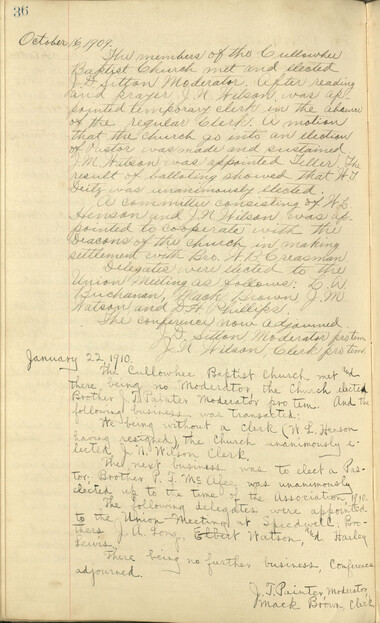 36
October 16, 1909.
The members of the Cullowhee
Baptist Church met and elected
J. D. Sitton Moderator. After reading
and prayer J. N. Wilson, was ap-
pointed temporary clerk in the absence
of the regular Clerk. A motion
that the church go into an election
of Pastor was made and sustained
J. M. Watson was appointed Teller. The
result of balloting showed that H. T.
Deitz was unanimously elected.
A committee consisting of W. L.
Henson and J. N. Wilson was ap-
pointed to cooperate with the
Deacons of the church in making
settlement with Bro. A. B. Creasman
Delegates were elected to the
Union Meeting as follows: L. W.
Buchanan, Mack Brown, J. M.
Watson and D. H. Phillips.
The conference now adjourned.
J. D. Sitton Moderator protem
J. N. Wilson, Clerk protem.
January 22, 1910.
The Cullowhee Baptist Church met and
there being no Moderator the Church elected
Brother J. T. Painter Moderator pro tem. And the
following business was transacted:
We being without a Clerk (W. L. Henson
having resigned) the Church unanimously e-
lected J. N. Wilson Clerk,
The next business was to elect a Pas-
tor. Brother P. T. McAfee was unanimously
elected up to the time of the Association, 1910.
The following delegates were appointed
to the Union Meeting at Speedwell: Bro-
thers J. A. Long, Elbert Watson, and Harley
Lewis.
There being no further business, Conference
adjourned.
J. T. Painter, Moderator,
Mack Brown, Clerk